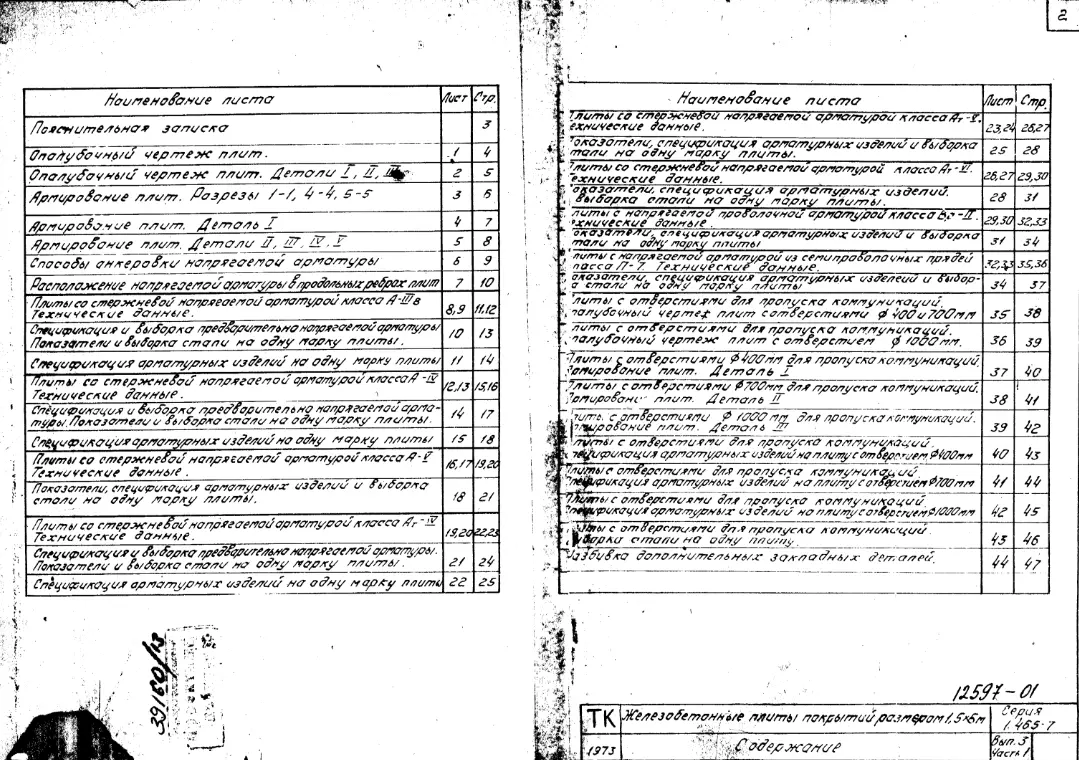 2
Наименование листа Лист Стр.
Пояснительная записка 3
Опалубочный чертеж плит. 1 4
Опалубочный чертеж плит. Детали I, II, III 2 5
Армирование плит. Разрезы 1-1, 4-4, 5-5 3 6
Армирование плит. Деталь I 4 7
Армирование плит. Детали II, III, IV, V 5 8
Способы анкеровки напрягаемой арматуры 6 9
Расположение напрягаемой арматуры в продольных ребрах плит 7 10
Плиты со стержневой напрягаемой арматурой класса А-IIIв
Технические данные. 8,9 11,12
Спецификация и выборка предварительно напрягаемой арматуры
Показатели и выборка стали на одну марку плиты. 10 13
Спецификация арматурных изделий на одну марку плиты 11 14
Плиты со стержневой напрягаемой арматурой класса А-IV
Технические данные. 12,13 15,16
Спецификация и выборка предварительно напрягаемой арма-
туры. Показатели и выборка стали на одну марку плиты. 14 17
Спецификация арматурных изделий на одну марку плиты 15 18
Плиты со стержневой напрягаемой арматурой класса А-V
Технические данные. 16,17 19,20
Показатели, спецификация арматурных изделий и выборка
стали на одну марку плиты. 18 21
Плиты со стержневой напрягаемой арматурой класса Ат-IV
Технические данные. 19,20 22,23
Спецификация и выборка предварительно напрягаемой арматуры.
Показатели и выборка стали на одну марку плиты. 21 24
Спецификация арматурных изделий на одну марку плиты 22 25
Наименование листа Лист Стр.
Плиты со стержневой напрягаемой арматурой класса Ат-V.
ехнические данные. 23,24 26,27
оказатели, спецификация арматурных изделий и выборка
тали на одну марку плиты. 25 28
Плиты со стержневой напрягаемой арматурой класса Ат-VI.
ехнические данные. 26,27 29,30
оказатели, спецификация арматурных изделий.
Выборка стали на одну марку плиты. 28 31
литы с напрягаемой проволочной арматурой класса Вр-II.
хнические данные. 29,30 32,33
оказатели, спецификация арматурных изделий и выборка
тали на одну марку плиты 31 34
литы с напрягаемой арматурой из семипроволочных прядей
ласса П-7. Технические данные. 32,33 35,36
оказатели, спецификация арматурных изделий и выбор-
а стали на одну марку плиты 34 37
литы с отверстиями для пропуска коммуникаций.
палубочный чертеж плит с отверстиями ф 400 и 700мм 35 38
литы с отверстиями для пропуска коммуникаций.
палубочный чертеж плит с отверстием ф 1000 мм. 36 39
Плиты с отверстиями ф 400мм для пропуска коммуникаций.
Армирование плит. Деталь I 37 40
Плиты с отверстиями ф 700мм для пропуска коммуникаций.
Армирование плит. Деталь II 38 41
литы с отверстиями ф 1000 мм для пропуска коммуникаций.
рмирование плит. Деталь III 39 42
литы с отверстиями для пропуска коммуникаций.
пецификация арматурных изделий на плиту с отверстием ф 400мм 40 43
Плиты с отверстиями для пропуска коммуникаций.
пецификация арматурных изделий на плиту с отверстием ф 700мм 41 44
Плиты с отверстиями для пропуска коммуникаций
пецификация арматурных изделий на плиту с отверстием ф 1000мм 42 45
литы с отверстиями для пропуска коммуникаций
Выборка стали на одну плиту. 43 46
Разбивка дополнительных закладных деталей. 44 47
39160/13
12597-01
ТК Железобетонные плиты покрытий размером 1,5х6м Серия
1.465-7
1973 Содержание Вып. 3
Часть 1